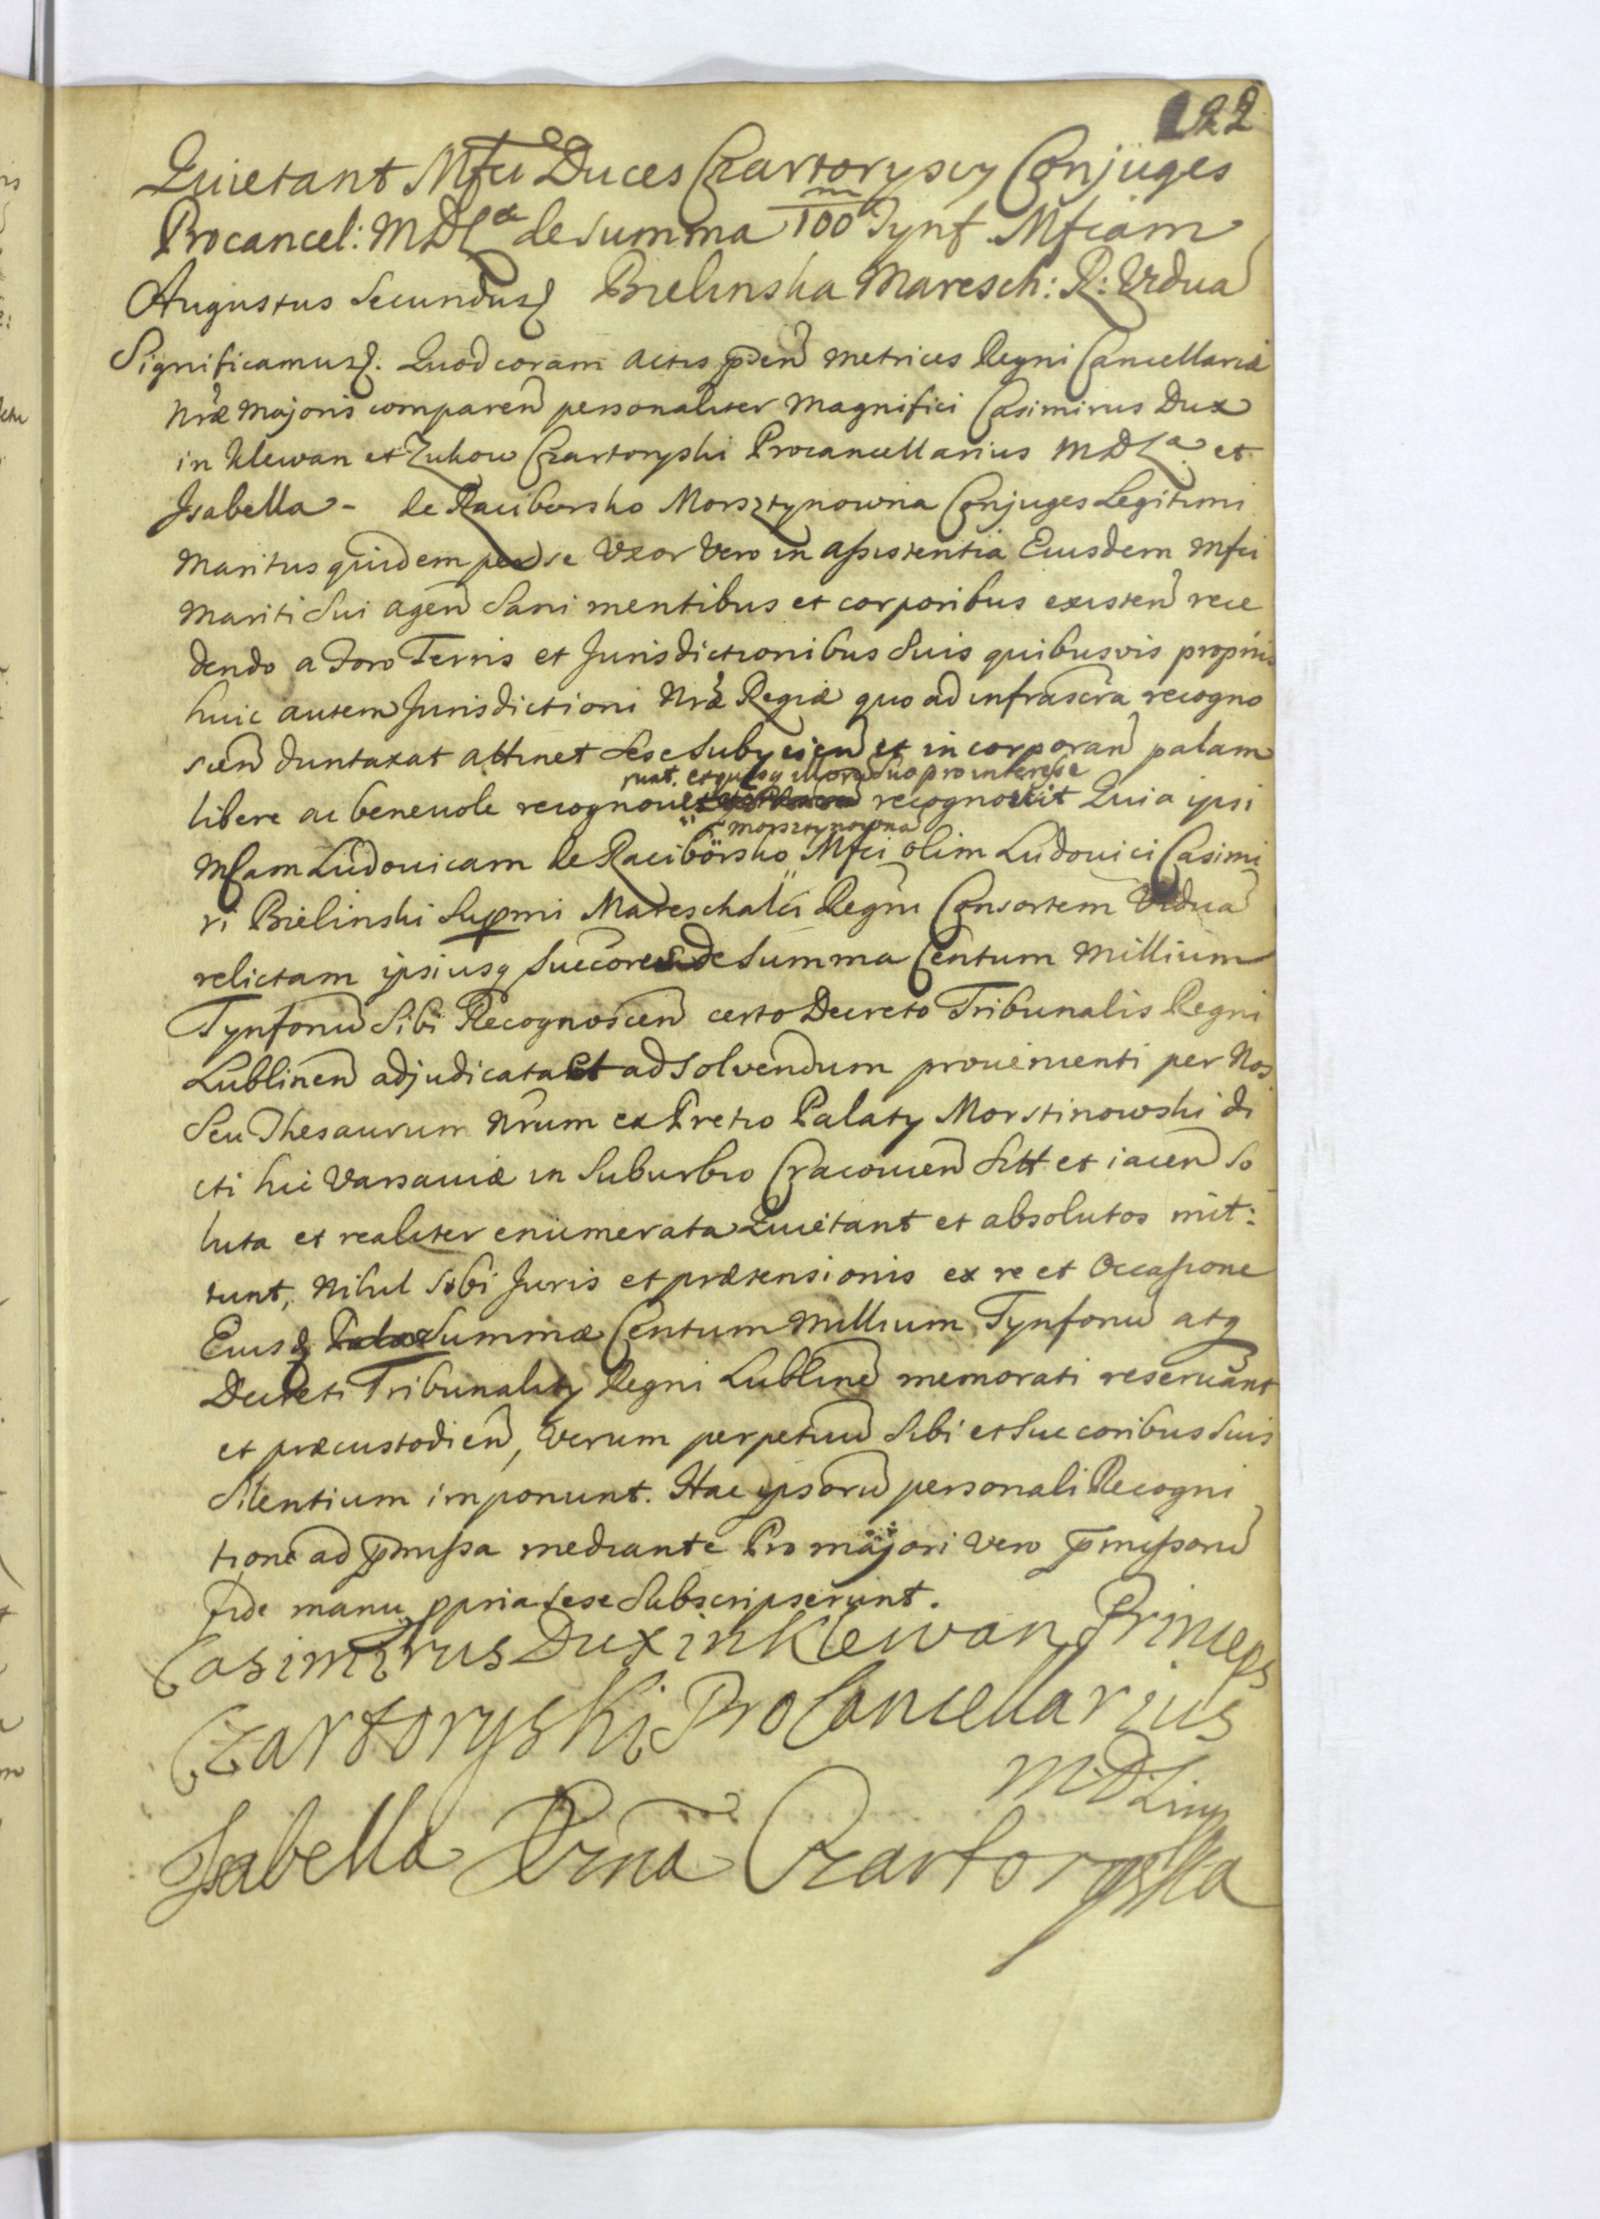 122
Quietant Mfci Duces Czartoryscy Conjuges
Procancel: MDLae de Summa 100 m Tynf Mfcam
Augustus Secundus Bielinska Maresch: R: Vidua
Significamus. Quod coram actis pden metrices Regni Cancellariæ
Nræ Majoris comparen personaliter Magnifici Casimirus Dux
in Klewan et Zukow Czartoryski Procancellarius MDLa et
Isabella - de Raciborsko Morsztynowna Conjuges Legitimi
Maritus quidem per se Vxor Vero in assistentia Eiusdem Mfci
Mariti Sui agen Sani mentibus et corporibus existen rece
dendo a Foro Terris et Jurisdictionibus Suis quibusvis proprijs
huic autem Jurisdictioni Nræ Regiæ quo ad infrascra recogno
scen duntaxat attinet sese Subijcien et incorporan palam
runt. Suo pro interesse
libere ac benevole recognoue recognoscit Quia ipsi
Morsztynowna
Mfcam Ludovicam de Raciborsko Mfci olim Ludovici Casimi
ri Bielinski Supmi Mareschalci Regni Consortem Vidua
relictam ipsiusq Succores de Summa Centum Millium
Tynfonu Sibi Recognoscen certo Decreto Tribunalis Regni
Lublinen adjudicata Et ad Solvendum provenienti per Nos
Seu Thesaurum Nrum ex Pretio Palaty Morstinowski di
cti hic Varsaviæ in Suburbio Cracovien Sitt et iacen So
luta et realiter enumerata Quietant et absolutos mit:
tunt, Nihil Sibi Juris et prætensionis ex re et Occasione
Eiusd Summæ Centum Millium Tynfonu atq
Decreti Tribunality Regni Lubline memorati reservant
et præcustodien, Verum perpetuu Sibi et Succoribus Suis
Silentium imponunt. Hac ipsoru personali Recogni
tione ad pmissa mediante Pro majori Vero pmissoru
fide manu ppria sese Subscripserunt.
Casimirus Dux in Klewan Princeps
Czartoryski ProCancellarius
M.D.Lit
Isabella Xżna Czartoryska